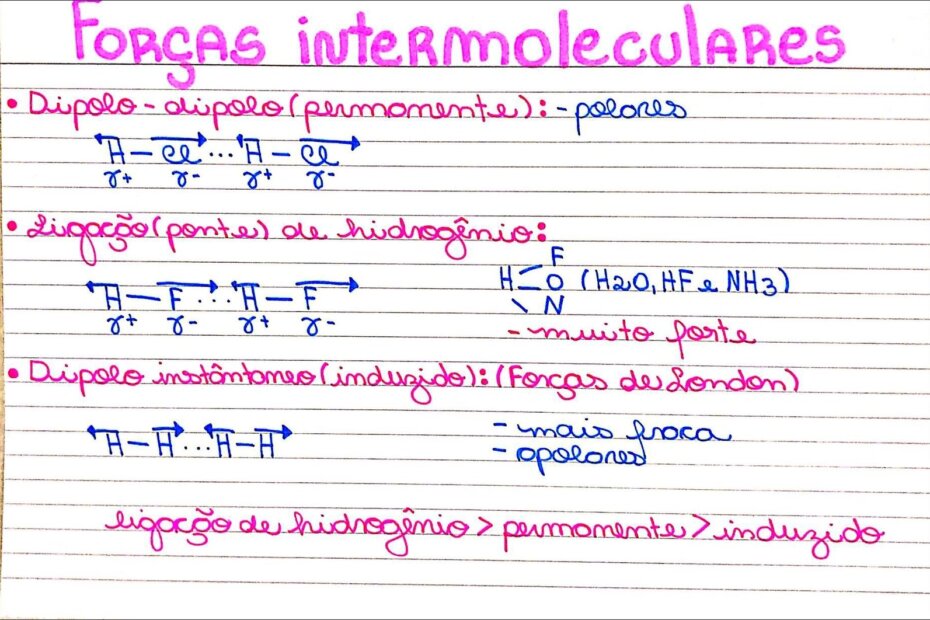 FORÇAS INTERMOLECULARES
• Dipolo - dipolo (permanente): - polares
H - Cl ... H - Cl
γ+ γ- γ+ γ-
• Ligação (ponte) de hidrogênio:
F
H - F ... H - F H - O (H2O, HF e NH3)
γ+ γ- γ+ γ- N
- muito forte
• Dipolo instântaneo (induzido): (Forças de London)
H - H ... H - H - mais fraca
- apolares
ligação de hidrogênio > permanente > induzido